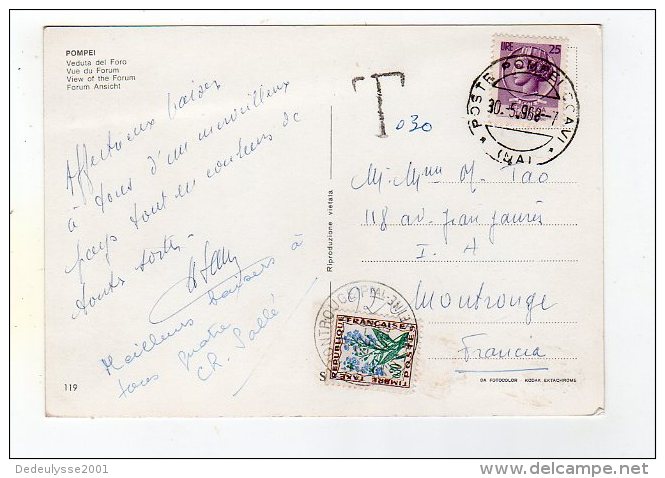 POMPEI
Veduta del Foro
Vue du Forum
View of the Forum
Forum Ansicht
T
030
LIRE 25
POSTE POMPEI SCAVI
30.-5.1968-7
(NA)
Affectueux baisers
à tous d'un merveilleux
pays tout en couleurs de
toutes sortes.
Meilleurs baisers à
tous quatre
Ch. Sallé
Riproduzione vietata
M. Mme M. Tao
118 av. Jean Jaurès
Montrouge
Francia
MONTROUGE
REPUBLIQUE FRANÇAISE
POSTES
TIMBRE TAXE
0,30
119
DA FOTOCOLOR KODAK EKTACHROME
Dedeulysse2001